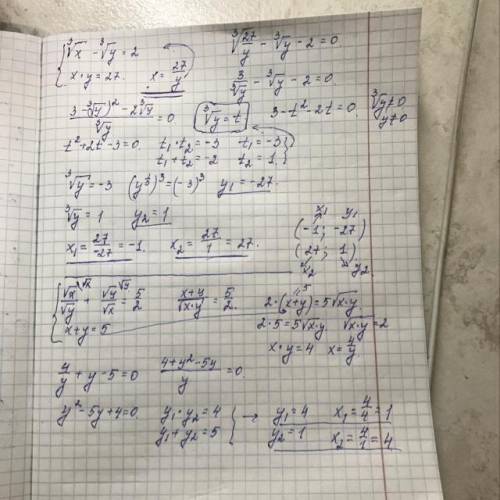 { ∛x - ∛y = 2
x·y = 27. x = 27/y
∛(27/y) - ∛y - 2 = 0.
3/∛y - ∛y - 2 = 0
(3 - (∛y)² - 2∛y)/∛y = 0
∛y = t
3 - t² - 2t = 0. ∛y ≠ 0
y ≠ 0
t² + 2t - 3 = 0. t₁·t₂ = -3 t₁ = -3
t₁ + t₂ = -2 t₂ = 1
∛y = -3 (y^(1/3))³ = (-3)³ y₁ = -27.
∛y = 1 y₂ = 1
x₁ = 27/-27 = -1. x₂ = 27/1 = 27.
x₁ y₁
(-1; -27)
(27; 1)
x₂ y₂
{ √x/√y + √y/√x = 5/2 (x+y)/√(x·y) = 5/2.
x + y = 5
2·(x+y) = 5√(x·y)
2·5 = 5√(x·y) √(x·y) = 2
x·y = 4 x = 4/y
4/y + y - 5 = 0 (4 + y² - 5y)/y = 0.
y² - 5y + 4 = 0 y₁·y₂ = 4
y₁ + y₂ = 5 } →
y₁ = 4 x₁ = 4/4 = 1
y₂ = 1 x₂ = 4/1 = 4